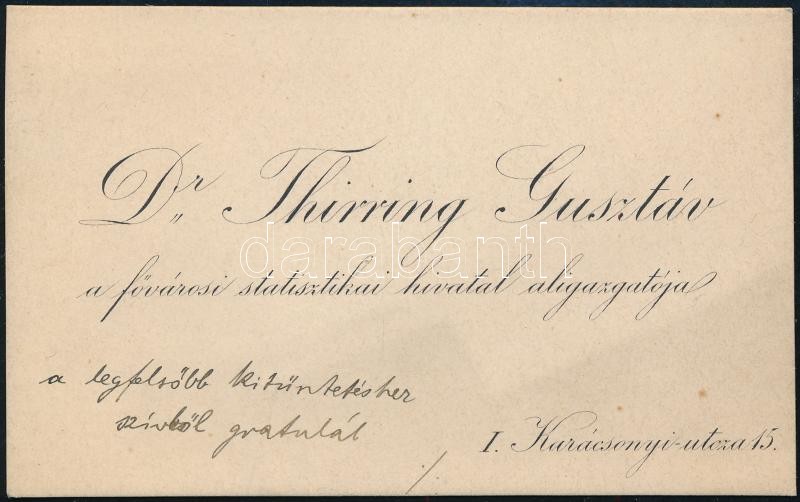 Dr Thirring Gusztáv
darabanth
a fővárosi statisztikai hivatal aligazgatója
a legfelsőbb kitüntetéshez
szívből gratulál
I. Karácsonyi-utcza 15.